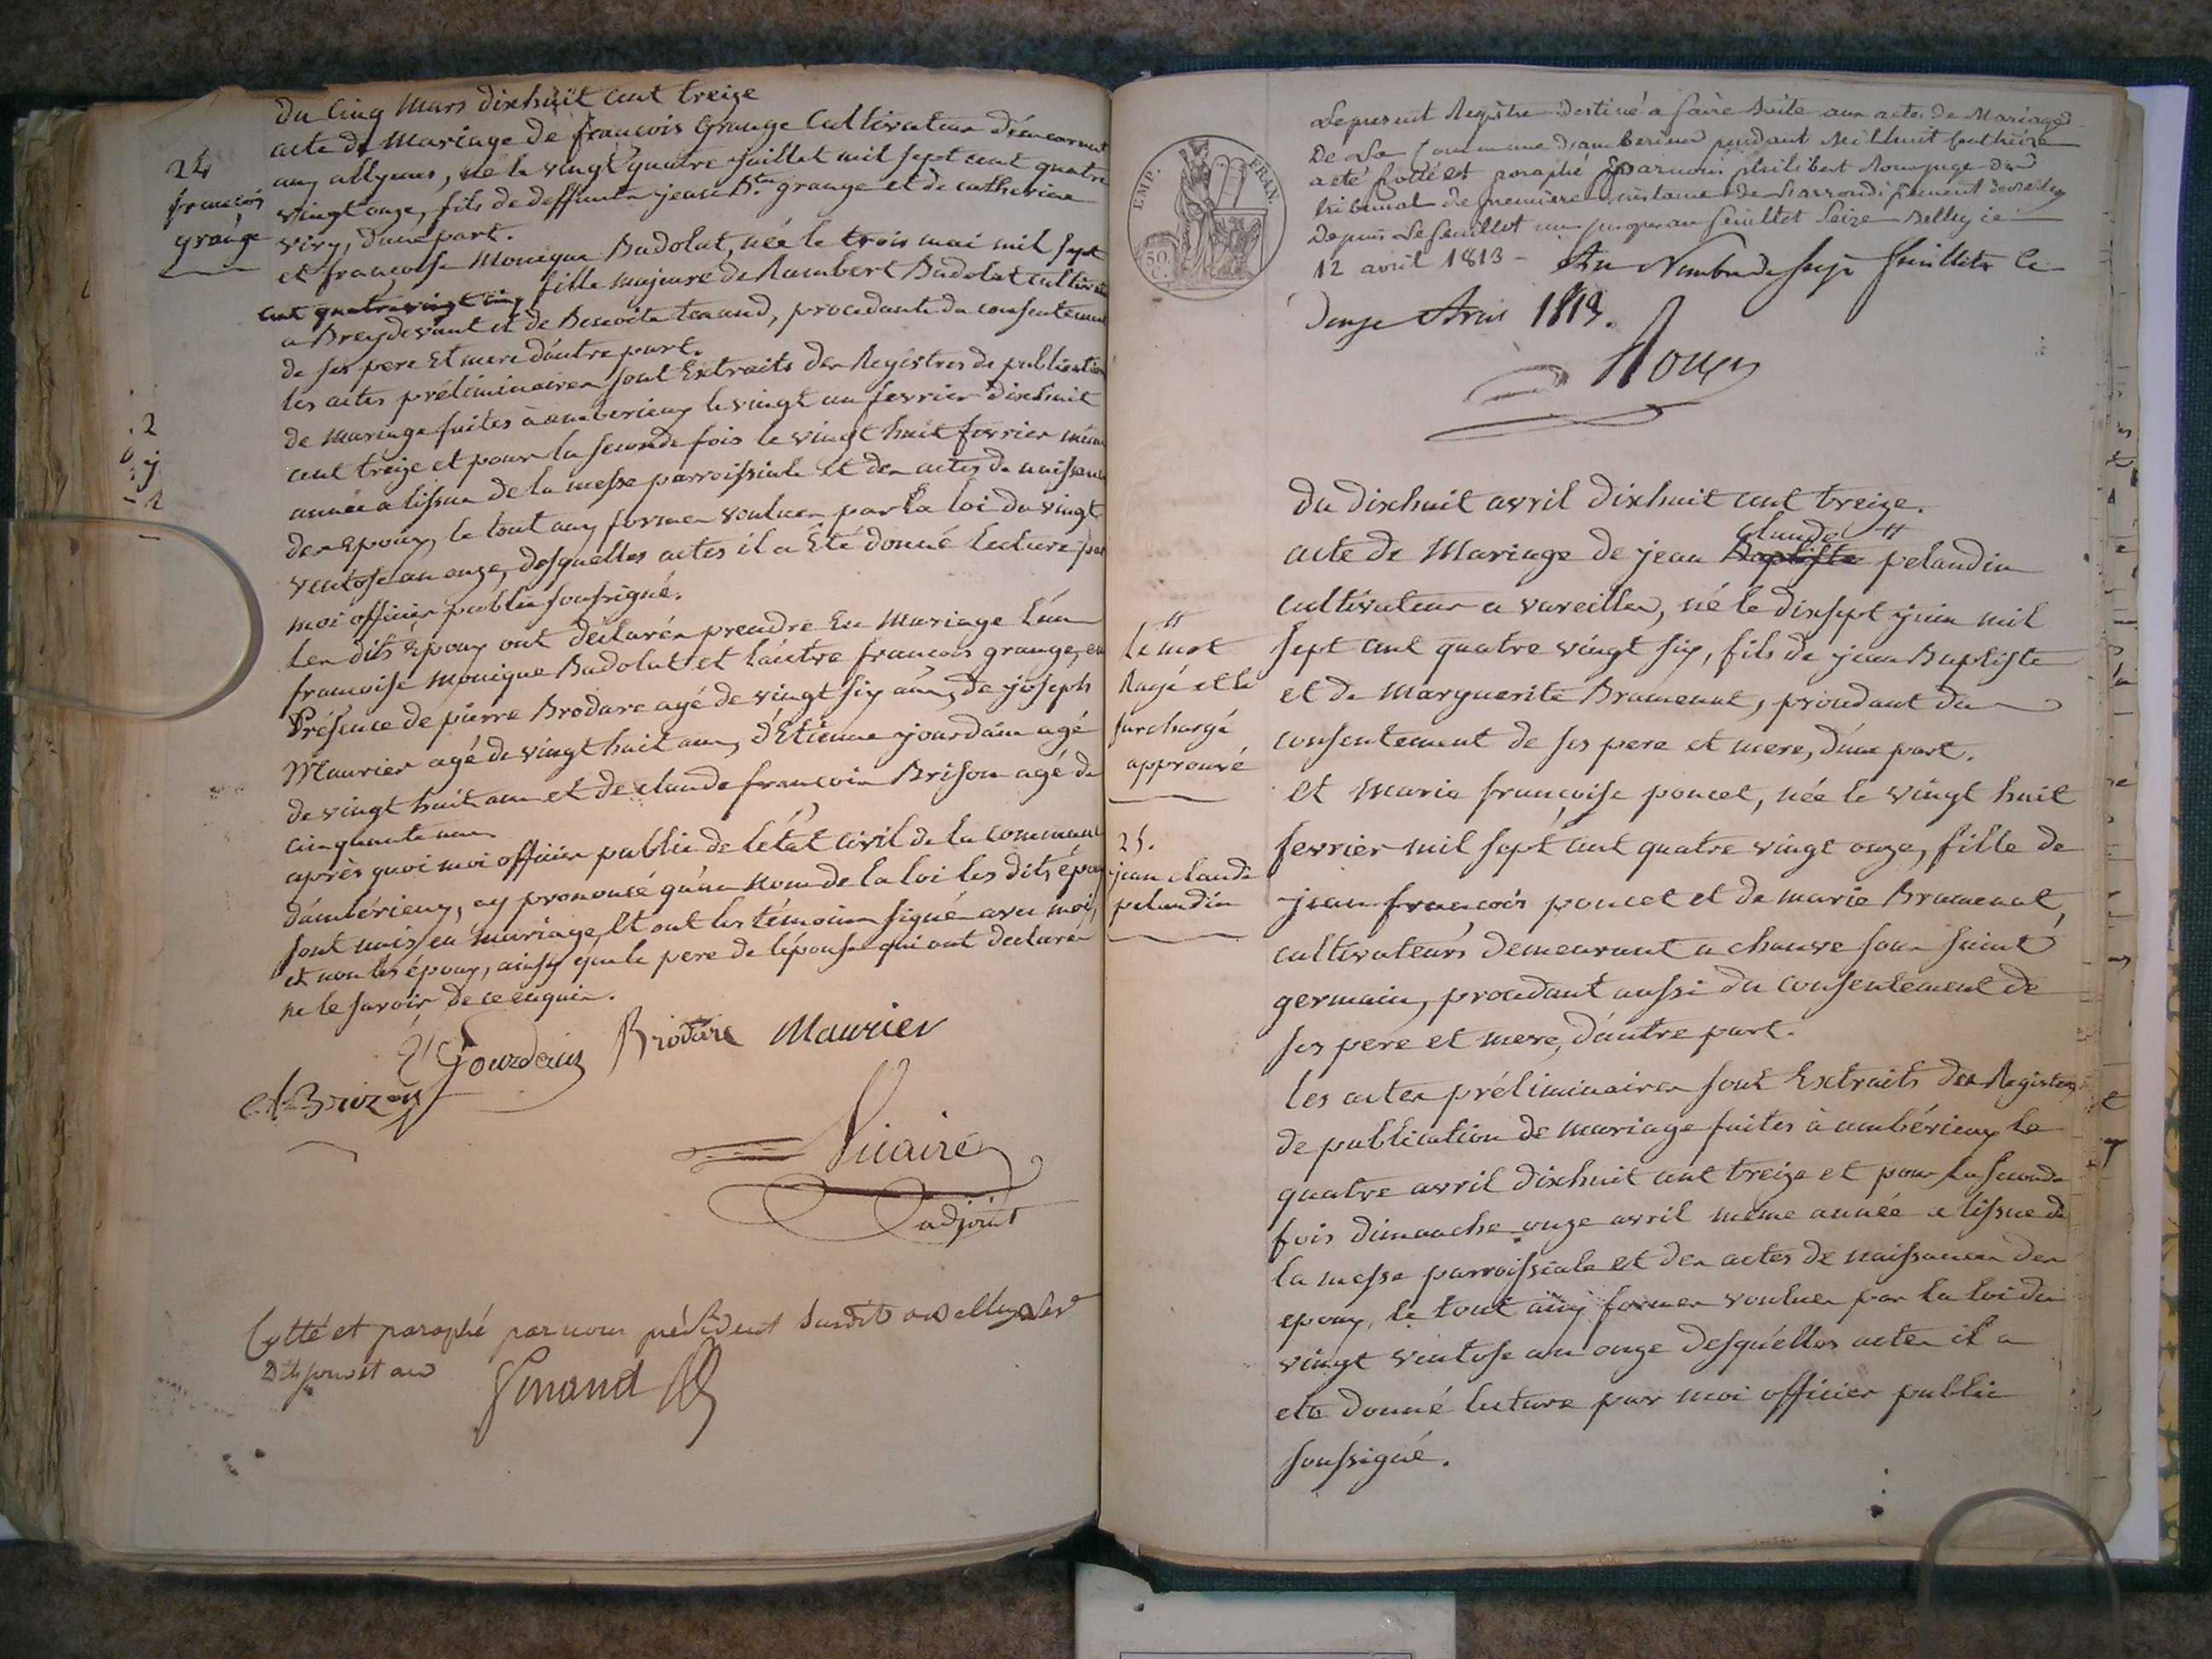 du cinq mars dixhuit cent treize
acte de Mariage de françois Grange Cultivateur demeurant
aux allymes, né le vingt quatre juillet mil sept cent quatre
vingt onze, fils de deffunt jean Bte grange et de catherine
viry, d'une part.
et françoise Monique Badolat, née le trois mai mil sept
cent quatre vingt cinq fille majeure de Rambert Badolat cultivateur
a Breydevant et de Benoite tenand, procedante du consentement
de ses pere et mere d'autre part.
les actes préliminaires sont Extraits des Registres de publication
de mariage faites à amberieux le vingt un fevrier dixhuit
cent treize et pour la seconde fois le vingt huit fevrier même
année a lissue de la messe parroissiale et des actes de naissance
des Epoux, le tout aux formes voulues par la loi du vingt
ventose an onze, desquelles actes il a Eté donné lecture par
moi officier public soussigné.
Les dits Epoux ont declarés prendre En Mariage L'un
francoise Monique Badolat et l'autre francois grange, en
Présence de pierre Brodare agé de vingt six ans, de joseph
Maurier agé de vingt huit ans, d'Etienne jourdain agé
de vingt huit ans et de claude francois Brison agé de
cinquante ans
après quoi moi officier public de l'état civil de la commune
d'ambérieux, ay prononcé qu'au nom de la loi les dits époux
sont unis en mariage, Et ont les témoins signé avec moi,
et non les époux, ainsy que le pere de l'épouse qui ont declarés
ne le savoir de ce enquis.
Jourdain Brodare Maurier
Brizon
Vicaire
adjoint
Cotté et paraphé par nous président susdit a Belley les
dits jour et an
Ginand
24
françois
grange
EMP. FRAN.
50 C.
Le present Registre destiné a faire suite aux actes de Mariages
De La Commune d'amberieux pendant Mil huit cent treize
a eté cotté et paraphé par nous philibert Rouyer juge du
tribunal de premiere instance de l'arrondissement de Belley
Depuis Le feuillet un jusqu'au feuillet Seize Belley ce
12 avril 1813 - Au Nombre de seize feuillets le
Douze Avril 1813.
Rouyer
du dixhuit avril dixhuit cent treize.
claude #
acte de Mariage de jean Baptiste pelaudin
cultivateur a vareilles, né le dixsept juin mil
sept cent quatre vingt six, fils de jean Baptiste
et de Marguerite Bramenat, procedant du
consentement de ses pere et mere, d'une part.
et Marie françoise poncet, née le vingt huit
fevrier mil sept cent quatre vingt onze, fille de
jean francois poncet et de marie Bramenat,
cultivateurs demeurant a chauve sous saint
germain, procedant aussi du consentement de
ses pere et mere, d'autre part.
les actes préliminaires sont Extraits des Registres
de publication de mariage faites à ambérieux le
quatre avril dixhuit cent treize et pour la seconde
fois dimanche onze avril même année a lissue de
la messe parroissiale et des actes de naissances des
epoux, le tout aux formes voulues par la loi du
vingt ventose an onze desquelles actes il a
eté donné lecture par moi officier public
soussigné.
#
le mot
Rayé et le
surchargé
approuvé
25.
jean claude
pelaudin